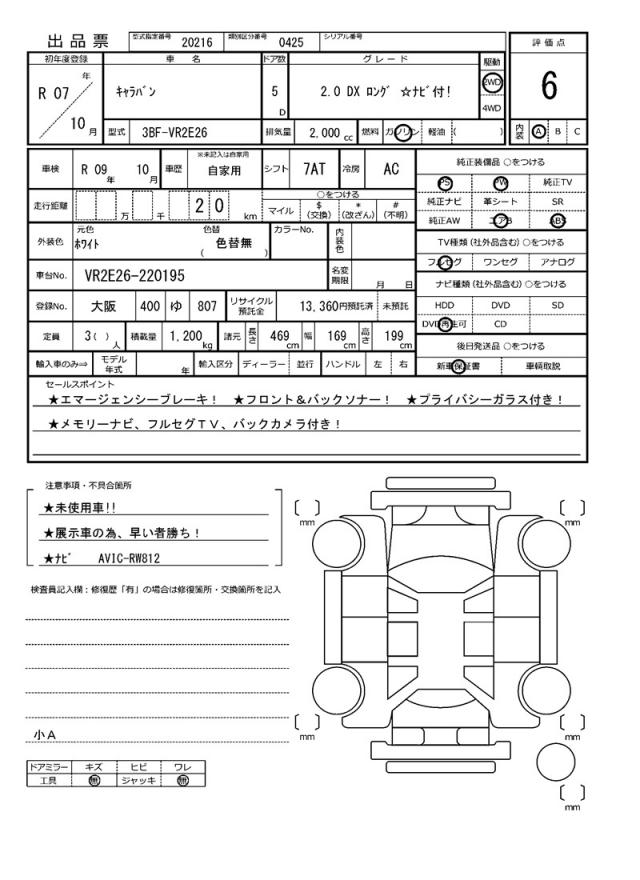 出品票 型式指定番号 20216 類別区分番号 0425 シリアル番号
初年度登録 車名 ドア数 グレード 駆動 評価点
R 07 年 10 月 キャラバン 5 D 2.0 DX ロング ☆ナビ付! 2WD 4WD 6
型式 3BF-VR2E26 排気量 2,000 cc 燃料 ガソリン 軽油 ( ) 内装 A B C
車検 R 09 年 10 月 車歴 ※未記入は自家用 自家用 シフト 7AT 冷房 AC 純正装備品 ○をつける
PS PW 純正TV
走行距離 万 千 2 0 km ○をつける マイル $(交換) *(改ざん) #(不明) 純正ナビ 革シート SR
純正AW エアB ABS
外装色 元色 ホワイト 色替 色替無 ( ) カラーNo. 内装色 TV種類(社外品含む)○をつける
フルセグ ワンセグ アナログ
車台No. VR2E26-220195 名変期限 月 日 ナビ種類(社外品含む)○をつける
登録No. 大阪 400 ゆ 807 リサイクル預託金 13,360円預託済 未預託 HDD DVD SD
DVD再生可 CD
定員 3( ) 人 積載量 1,200 kg 諸元 長さ 469 cm 幅 169 cm 高さ 199 cm 後日発送品 ○をつける
輸入車のみ⇒ モデル年式 年 輸入区分 ディーラー 並行 ハンドル 左 右 新車保証書 車輌取説
セールスポイント
★エマージェンシーブレーキ! ★フロント&バックソナー! ★プライバシーガラス付き!
★メモリーナビ、フルセグTV、バックカメラ付き!
注意事項・不具合箇所
★未使用車!!
★展示車の為、早い者勝ち!
★ナビ AVIC-RW812
検査員記入欄:修復歴「有」の場合は修復箇所・交換箇所を記入
小A
ドアミラー キズ ヒビ ワレ
工具 無 ジャッキ 無
[ ] mm [ ] mm
[ ] mm [ ] mm
[ ] mm